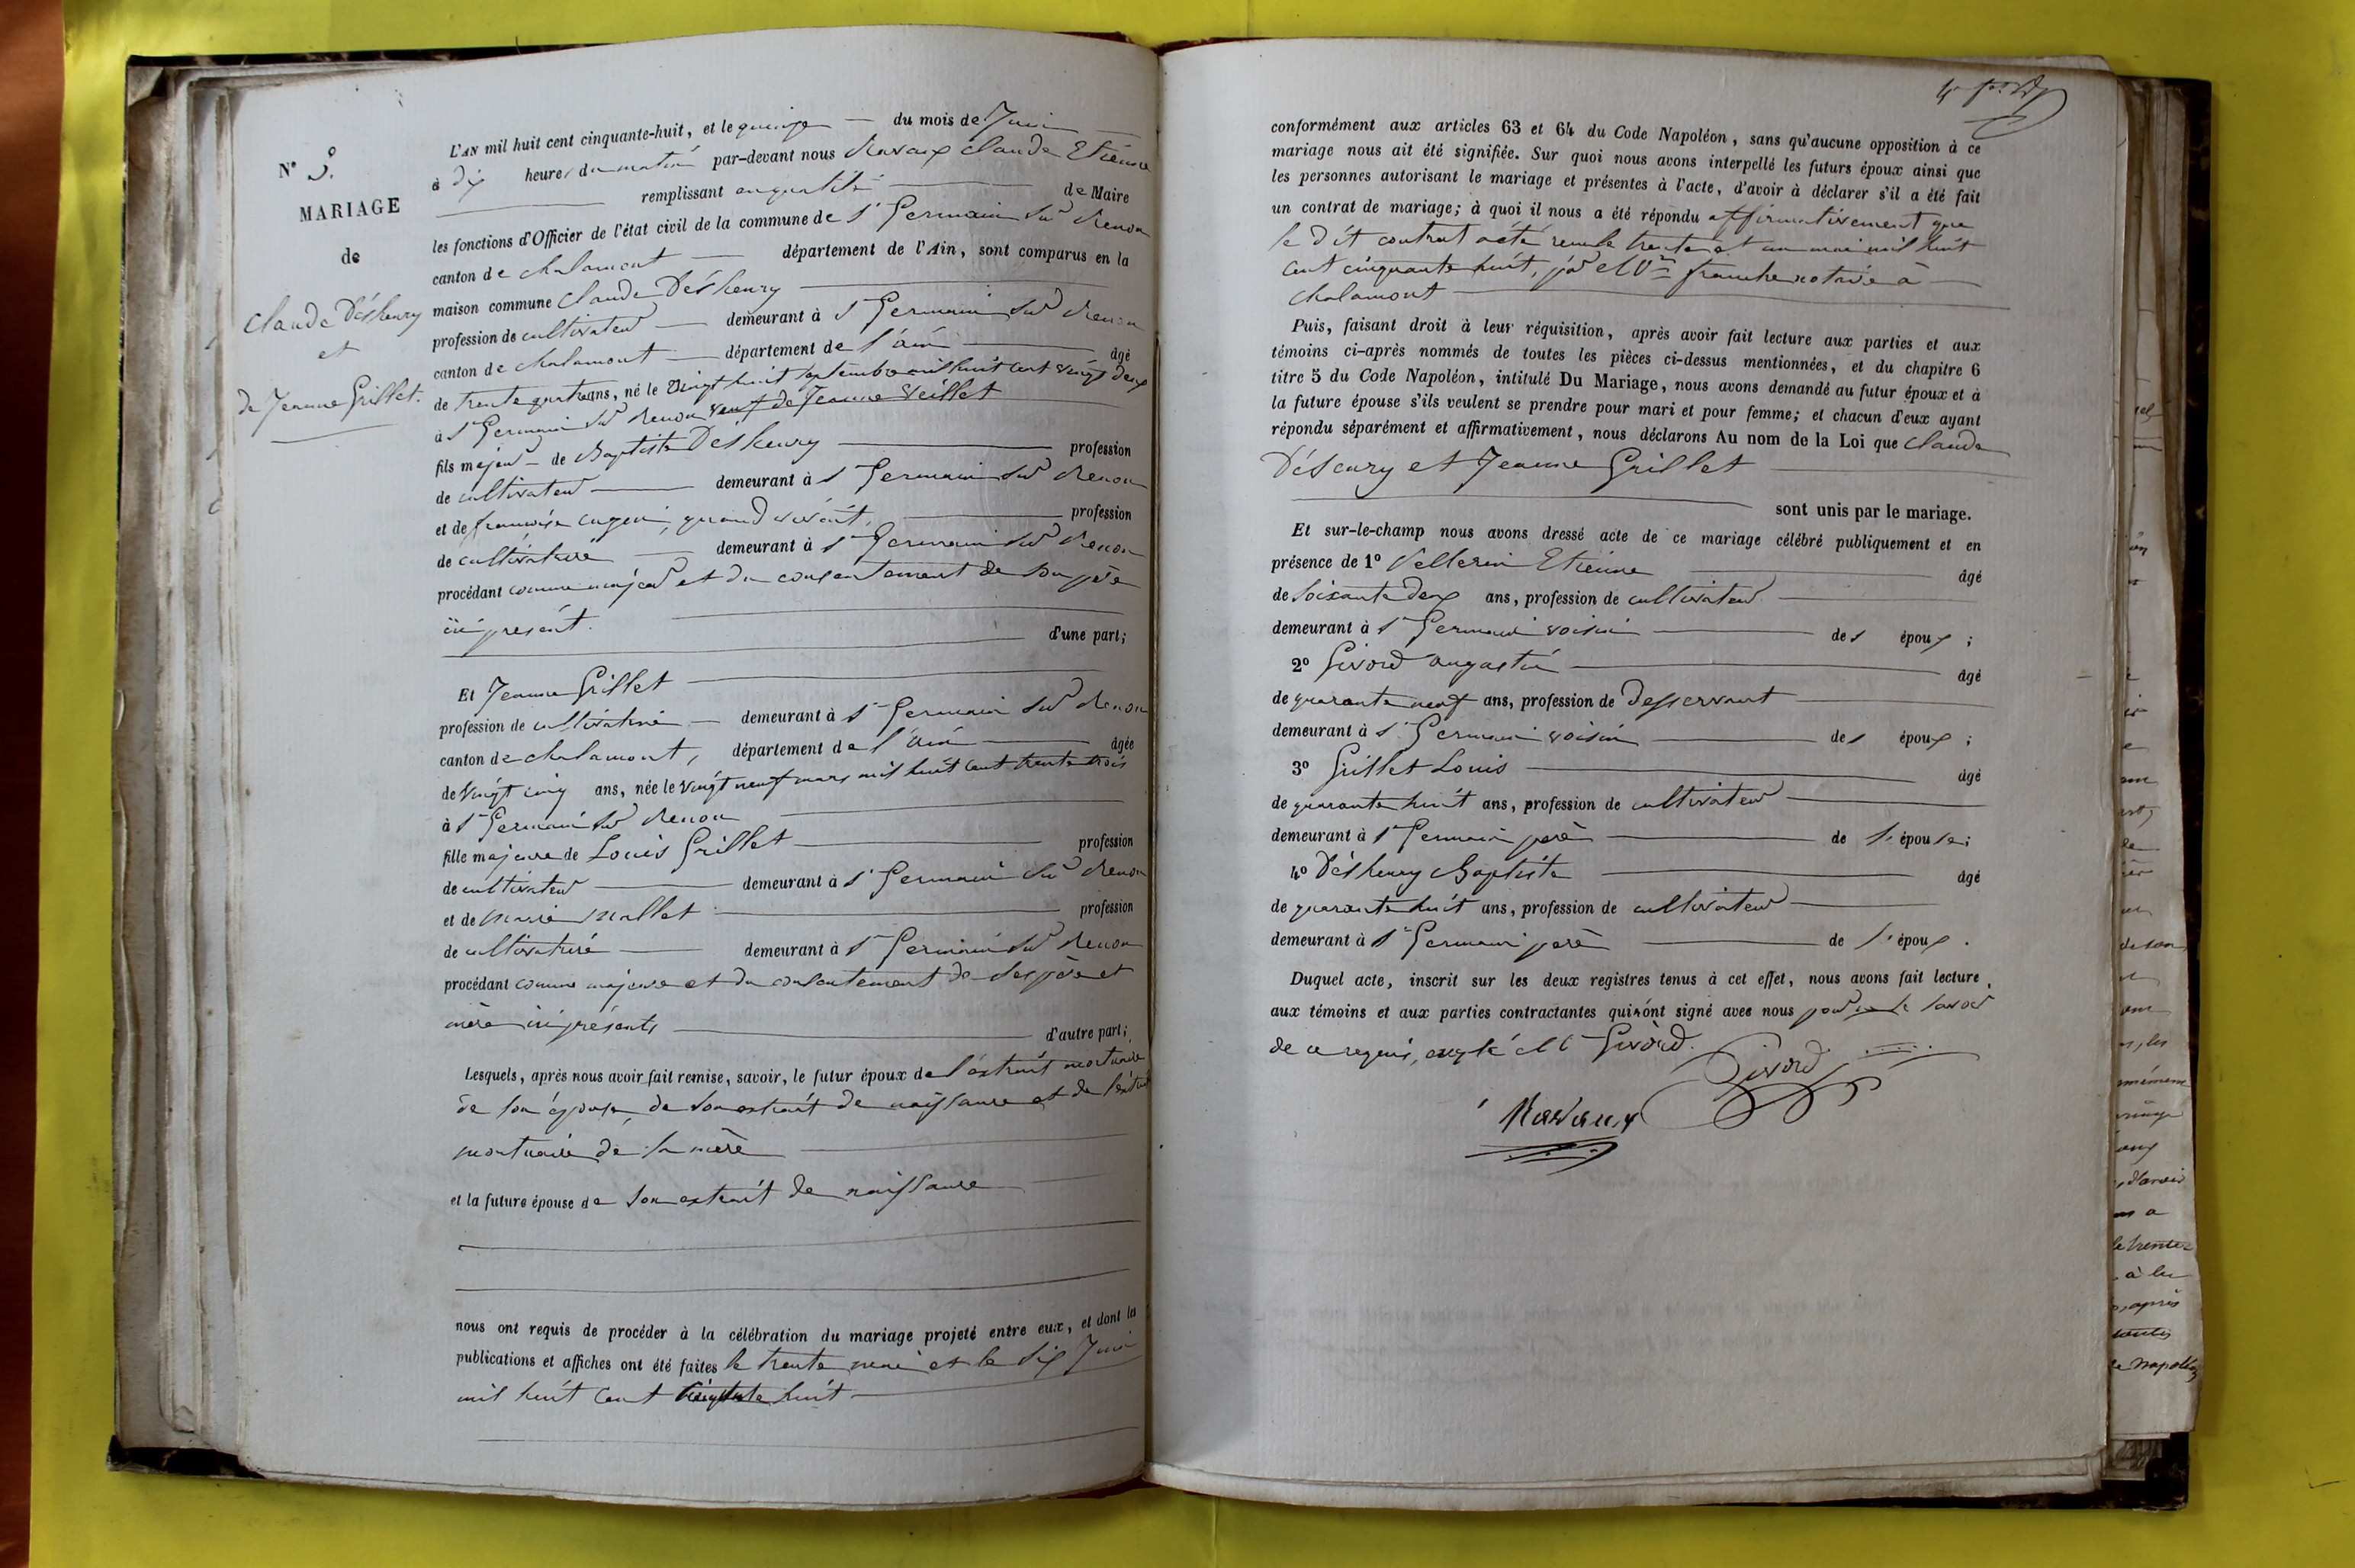 N° 3.
MARIAGE
de
Claude Déshenry
et
de Jeanne Grillet.
L'AN mil huit cent cinquante-huit, et le quinze du mois de Juin
à dix heures du matin par-devant nous Ravaux Claude Etienne
remplissant en qualité de Maire
les fonctions d'Officier de l'état civil de la commune de St Germain sur Renon
canton de chalamont département de l'Ain, sont comparus en la
maison commune Claude Déshenry
profession de cultivateur demeurant à St Germain sur Renon
canton de chalamont département de l'ain âgé
de trente quatre ans, né le vingt huit septembre mil huit cent vingt deux
à St Germain sur Renon veuf de Jeanne Veillet
fils majeur de Baptiste Déshenry profession
de cultivateur demeurant à St Germain sur Renon
et de francoise, quand vivait, profession
de cultivatrice demeurant à St Germain sur Renon
procédant comme majeur et du consentement de son père
ici présent. d'une part;
Et Jeanne Grillet
profession de cultivatrice demeurant à St Germain sur Renon
canton de chalamont, département de l'ain âgée
de vingt cinq ans, née le vingt neuf mars mil huit cent trente trois
à St Germain sur Renon
fille majeure de Louis Grillet profession
de cultivateur demeurant à St Germain sur Renon
et de Marie Mallet profession
de cultivatrice demeurant à St Germain sur Renon
procédant comme majeure et du consentement de ses père et
mère ici présents d'autre part;
Lesquels, après nous avoir fait remise, savoir, le futur époux de l'extrait mortuaire
de son épouse, de son extrait de naissance et de l'extrait
mortuaire de sa mère
et la future épouse de son extrait de naissance
nous ont requis de procéder à la célébration du mariage projeté entre eux, et dont les
publications et affiches ont été faites le trente mai et le six Juin
mil huit cent huit
conformément aux articles 63 et 64 du Code Napoléon, sans qu'aucune opposition à ce
mariage nous ait été signifiée. Sur quoi nous avons interpellé les futurs époux ainsi que
les personnes autorisant le mariage et présentes à l'acte, d'avoir à déclarer s'il a été fait
un contrat de mariage; à quoi il nous a été répondu affirmativement que
le dit contrat a été reçu le trente et un mai mil huit
cent cinquante huit, par notaire à
Chalamont
Puis, faisant droit à leur réquisition, après avoir fait lecture aux parties et aux
témoins ci-après nommés de toutes les pièces ci-dessus mentionnées, et du chapitre 6
titre 5 du Code Napoléon, intitulé Du Mariage, nous avons demandé au futur époux et à
la future épouse s'ils veulent se prendre pour mari et pour femme; et chacun d'eux ayant
répondu séparément et affirmativement, nous déclarons Au nom de la Loi que Claude
Désenry et Jeanne Grillet
sont unis par le mariage.
Et sur-le-champ nous avons dressé acte de ce mariage célébré publiquement et en
présence de 1° Vellerin Etienne âgé
de soixante deux ans, profession de cultivateur
demeurant à St Germain voisin des époux;
2° Givord augustin âgé
de quarante neuf ans, profession de desservant
demeurant à St Germain voisin des époux;
3° Grillet Louis âgé
de quarante huit ans, profession de cultivateur
demeurant à St Germain père de l'épouse;
4° Déshenry Baptiste âgé
de quarante huit ans, profession de cultivateur
demeurant à St Germain père de l'époux.
Duquel acte, inscrit sur les deux registres tenus à cet effet, nous avons fait lecture,
aux témoins et aux parties contractantes qui n'ont signé avec nous pour ne le savoir
de ce requis, excepté Mr Givord.
Givord
Ravaux